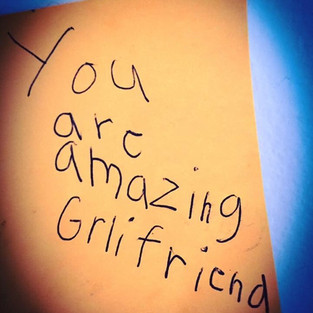 You
are
amazing
Grlifriend